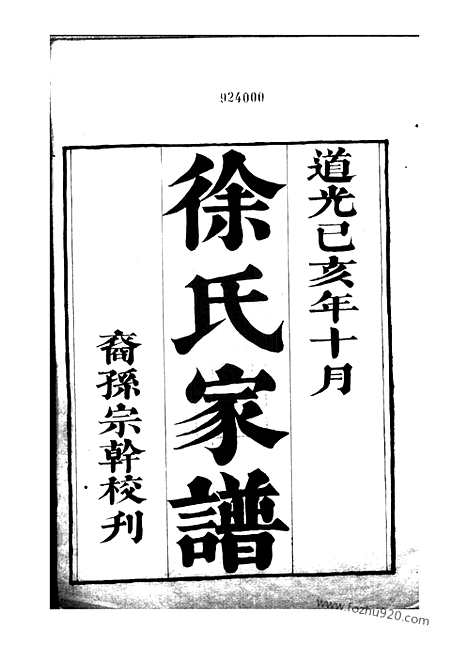 924000
道光己亥年十月
徐氏家譜
裔孫宗幹校刊
www.fozhu920.com